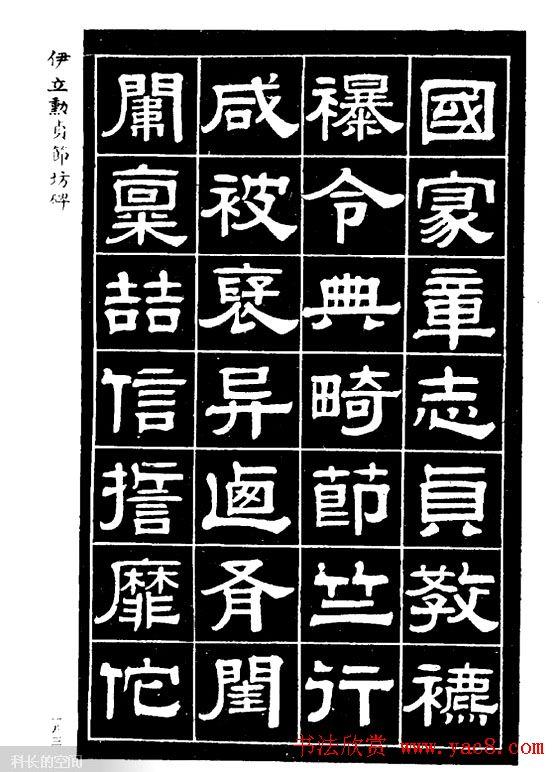 國家章志貞教
襮令典畸節竺行
咸被褒异逌胥閨
闈稟喆信誓靡佗
伊立勳貞節坊碑
一八三
书法欣赏 www.yac8.com
科长的空间